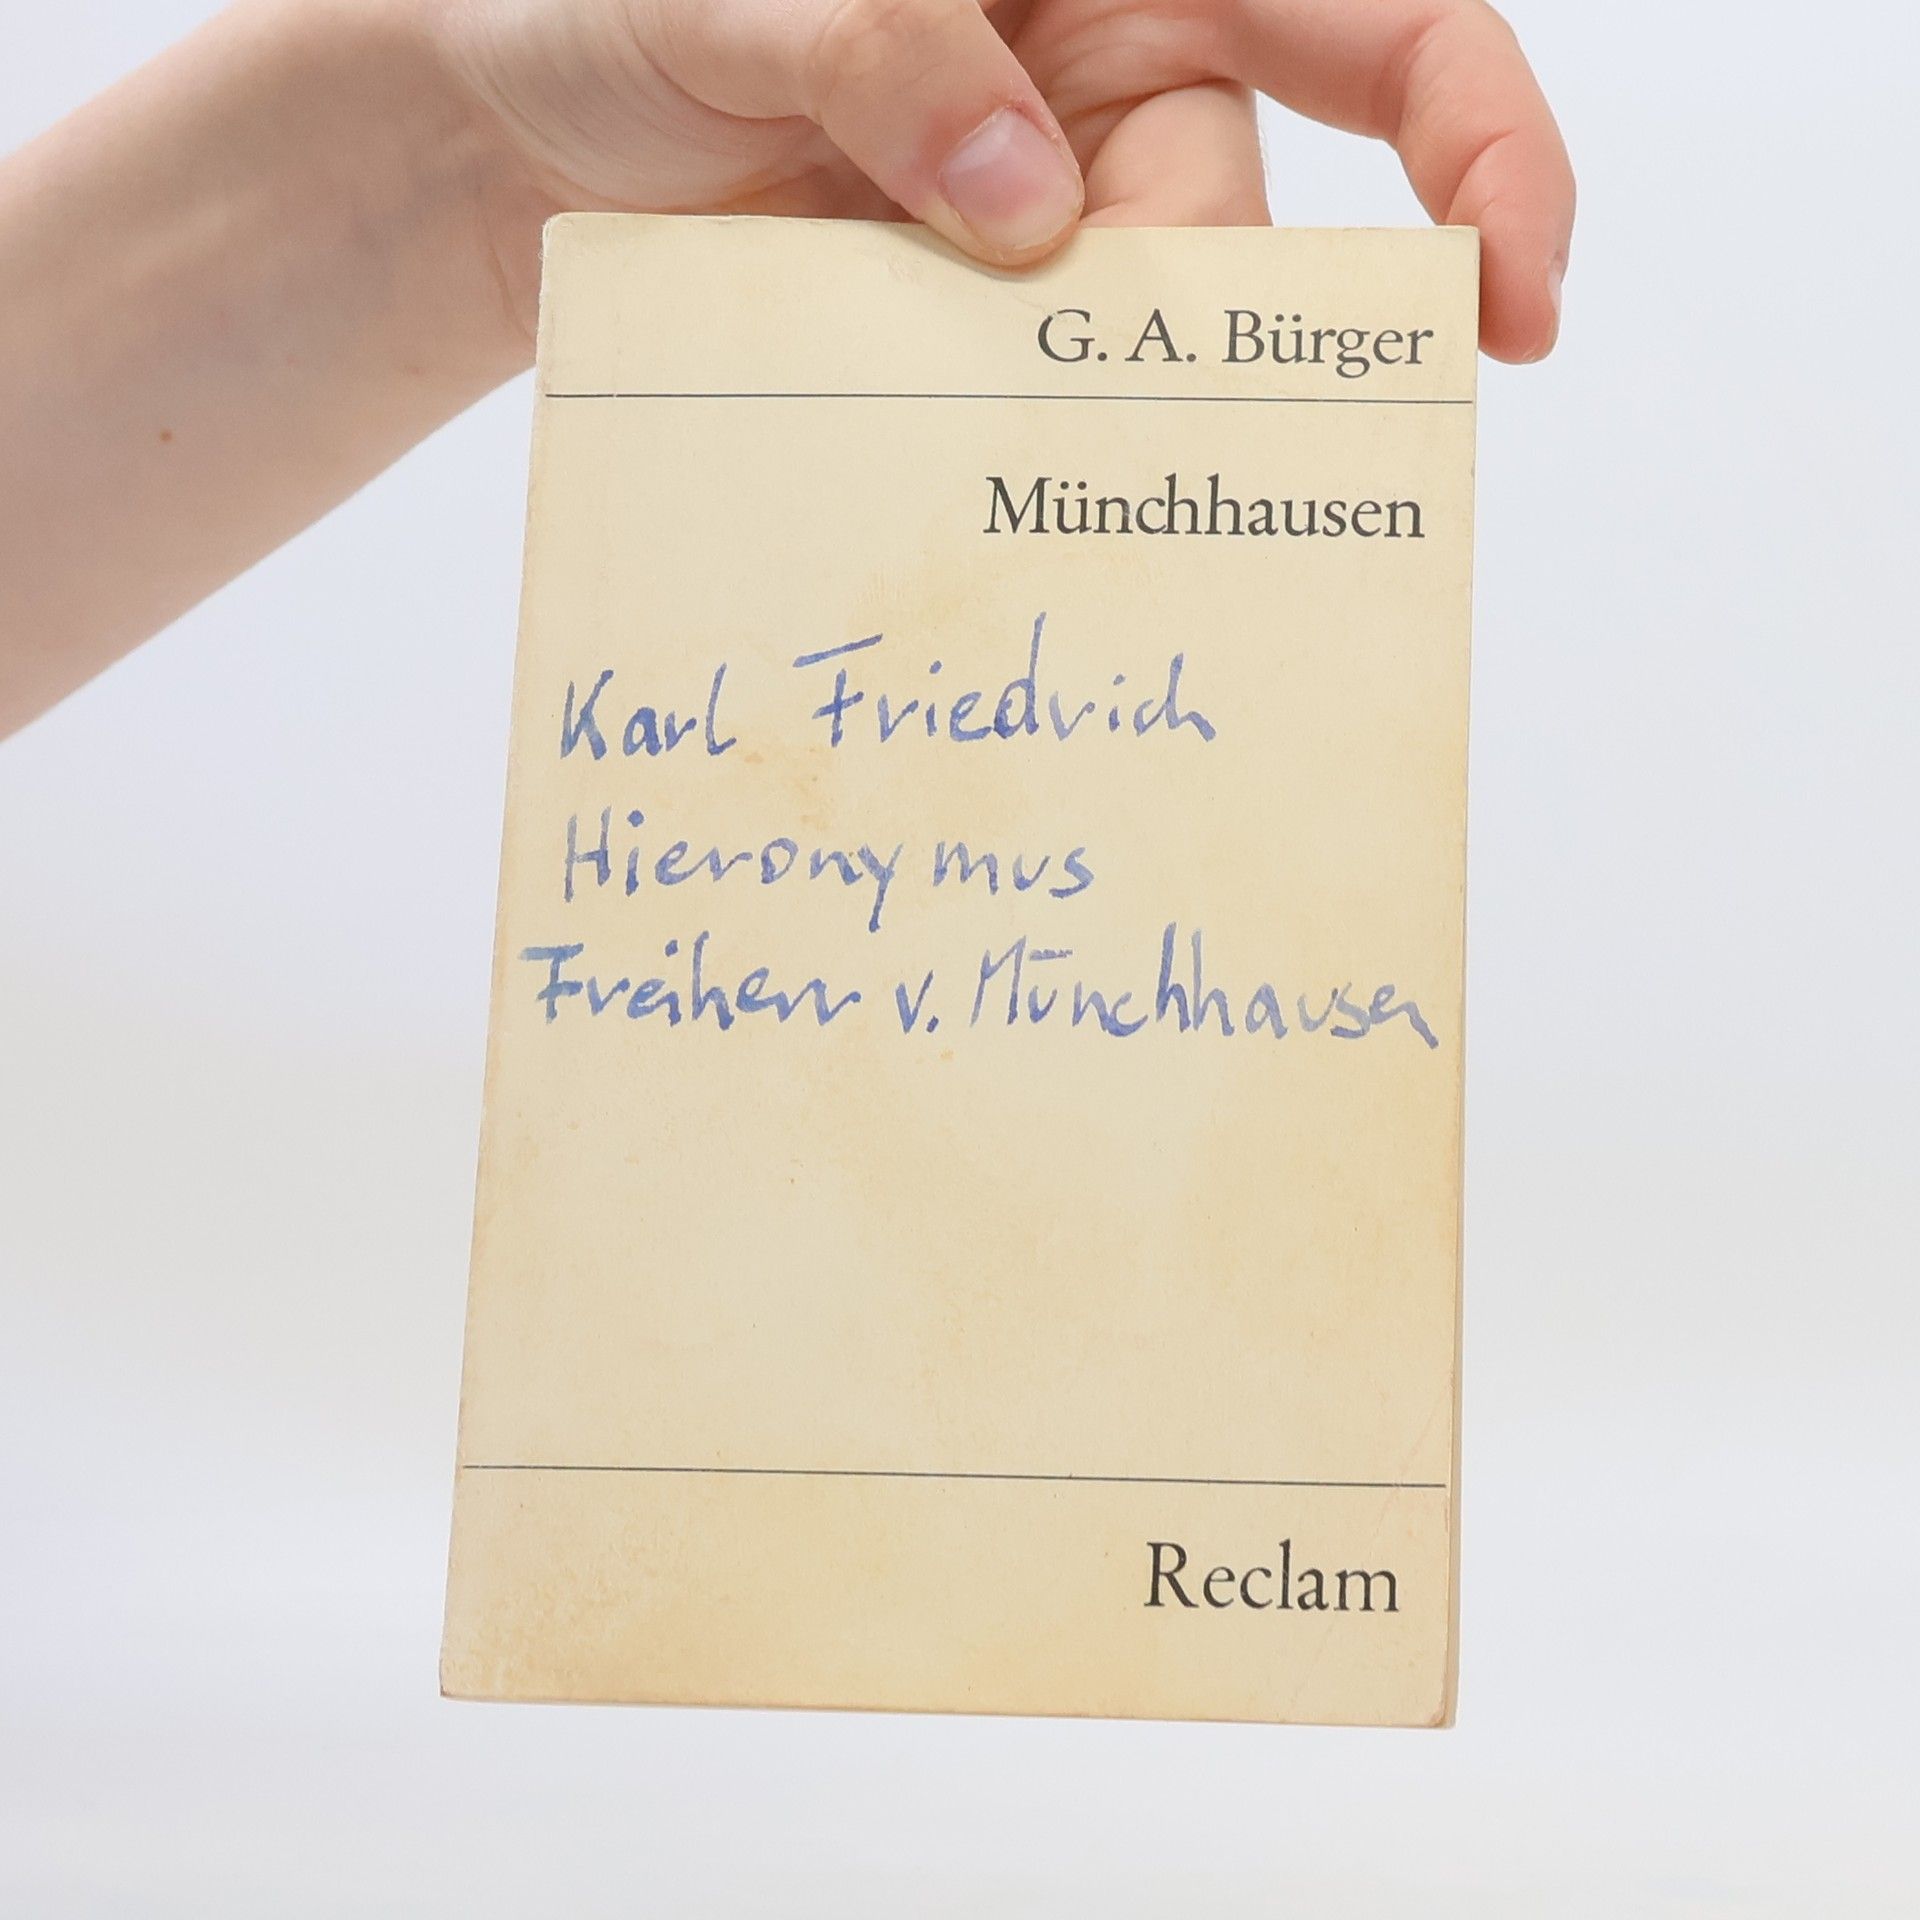 G. A. Bürger
Münchhausen
Karl Friedrich
Hieronymus
Freiherr v. Münchhausen
Reclam